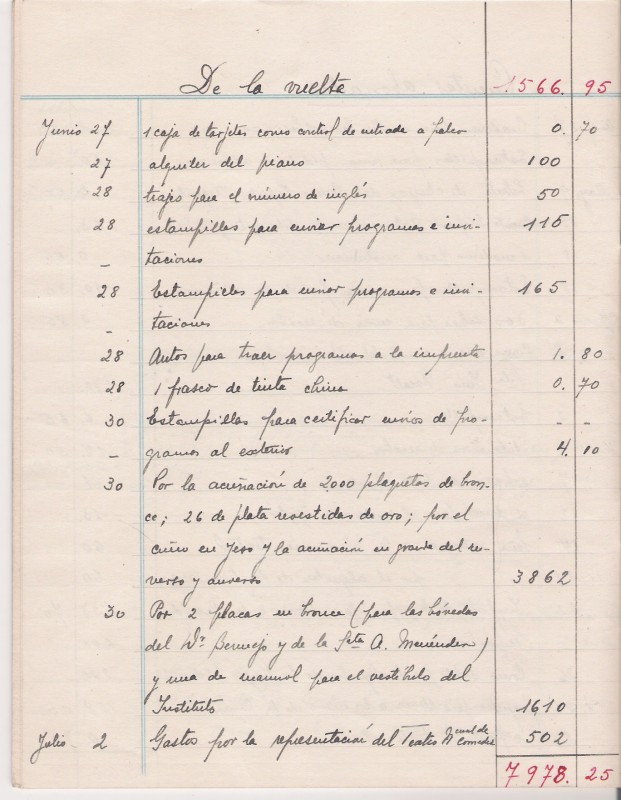 De la vuelta 1566. 95
Junio 27 1 caja de tarjetas como control de entrada a palco 0. 70
27 alquiler del piano 100
28 trajes para el número de inglés 50
28 estampillas para enviar programas e invi- 115
– taciones
28 Estampillas para enviar programas e invi- 165
- taciones
28 Autos para traer programas a la imprenta 1. 80
28 1 frasco de tinta china 0. 70
30 Estampillas para certificar envíos de pro- - -
– gramas al exterior 4. 10
30 Por la acuñación de 2.000 plaquetas de bron-
ce; 26 de plata revestidas de oro; por el
cuño en yeso y la acuñación en grande del re-
verso y anverso 3862
30 Por 2 placas en bronce (para las bóvedas
del Dr. Bermejo y de la Srta A. Menéndez)
y una de marmol para el vestíbulo del
Instituto 1610
Julio 2 Gastos por la representación del Teatro Ncional de Comedia 502
7978. 25